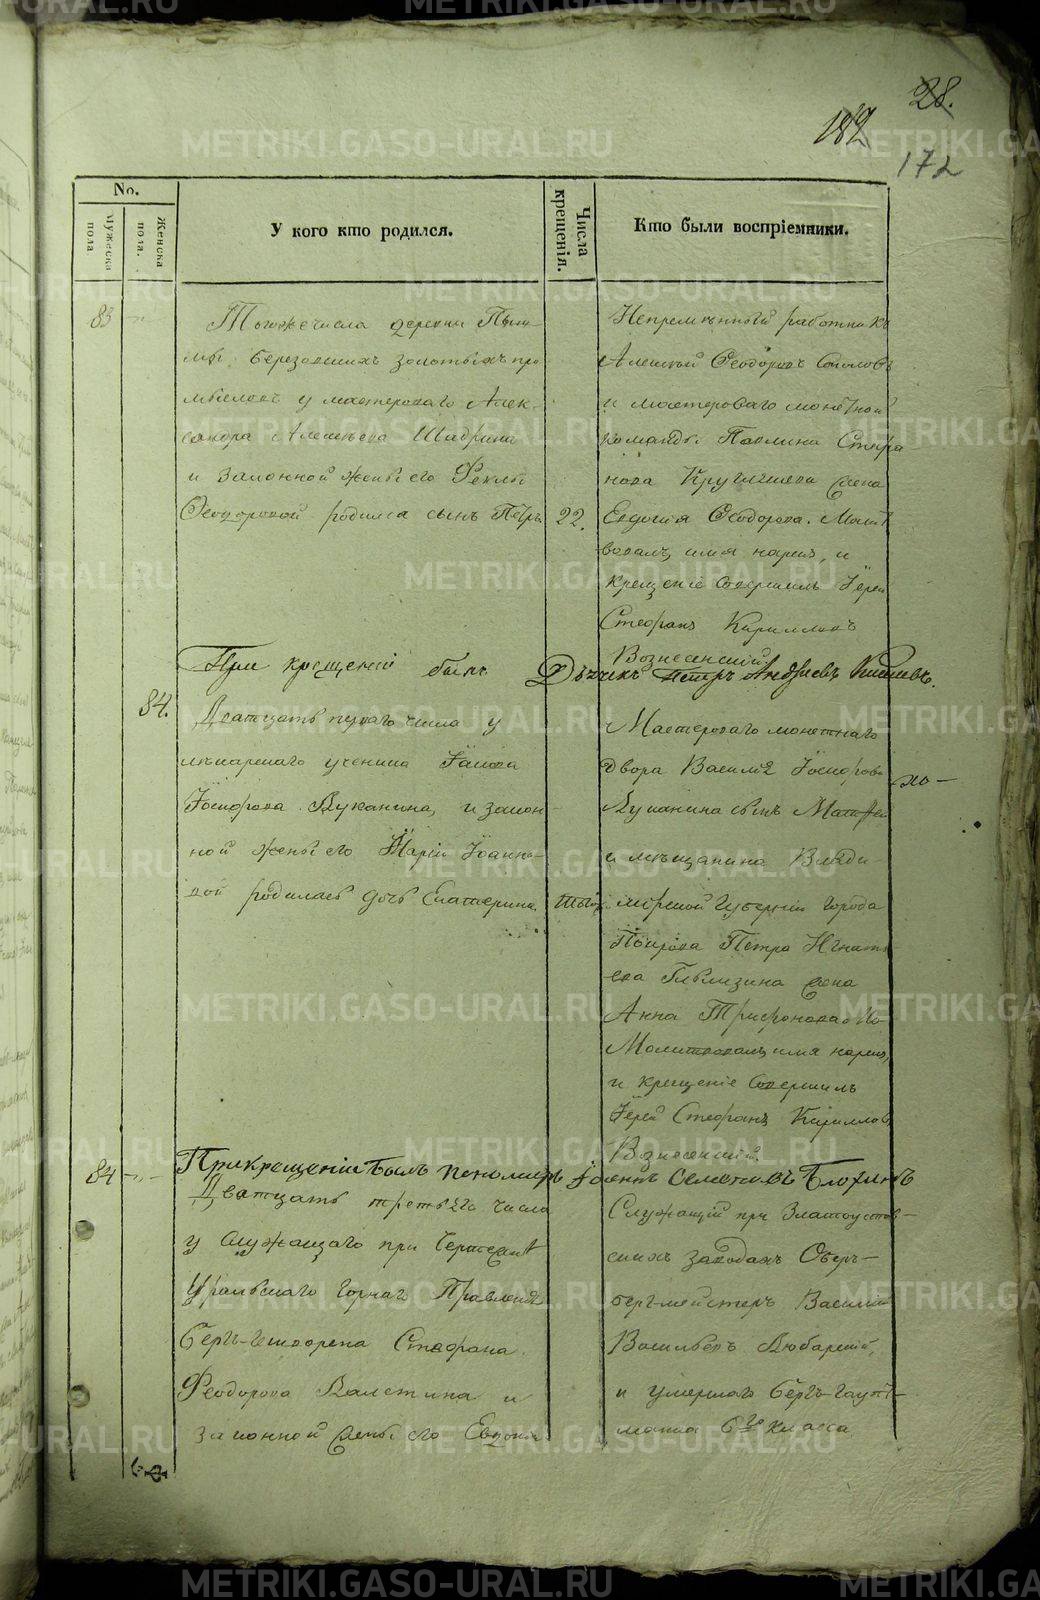 28.
182
172
No.
Мужеска пола
Женска пола.
У кого кто родился.
Числа крещенія.
Кто были воспріемники.
83
Тогоже числа деревни Пыш-
мы Березовскихъ золотыхъ про
мысловъ у мастероваго Алек-
сандра Алексѣева Шадрина
и законной жены его Феклы
Ѳеодоровой родился сынъ Петръ
22.
Непремѣнный работникъ
Алексѣй Ѳеодоровъ Соколовъ
и мастероваго монетной
команды Павлина Степа-
нова жена
Евдокія Ѳеодорова. Молит
вовалъ, имя нарекъ, и
крещеніе совершилъ Іерей
Стефанъ Кирилловъ
Вознесенскій.
При крещеніи былъ Дьячекъ Петръ Андреевъ
84.
Дватцать перваго числа у
лѣкарскаго ученика Іакова
Іосифова Луканина, и закон-
ной жены его Маріи Іоанно-
вой родилась дочь Екатерина
тогож
Мастероваго монетнаго
двора Василія Іосифова
Луканина сынъ Матфей
и мѣщанина Влади-
мірской губерніи города
Покрова Петра Игнать-
ева жена
Анна Трифонова
Молитвовалъ, имя нарекъ,
и крещеніе Совершилъ
Іерей Стефанъ Кирилловъ
Вознесенскій.
84
При крещеніи былъ пономарь Іоаннъ Симеоновъ
Дватцать третьяго числа
у служащаго при Чертежной
Уральскаго Горнаго Правленія
Бергъ-гешворена Стефана
Феодорова и
законной жены его Евдокіи
Служащій при Златоустов-
скихъ заводахъ Оберъ-
бергмейстеръ Василій
Васильевъ Любарскій,
и умершаго бергъ-гаупт-
мана 6го класса